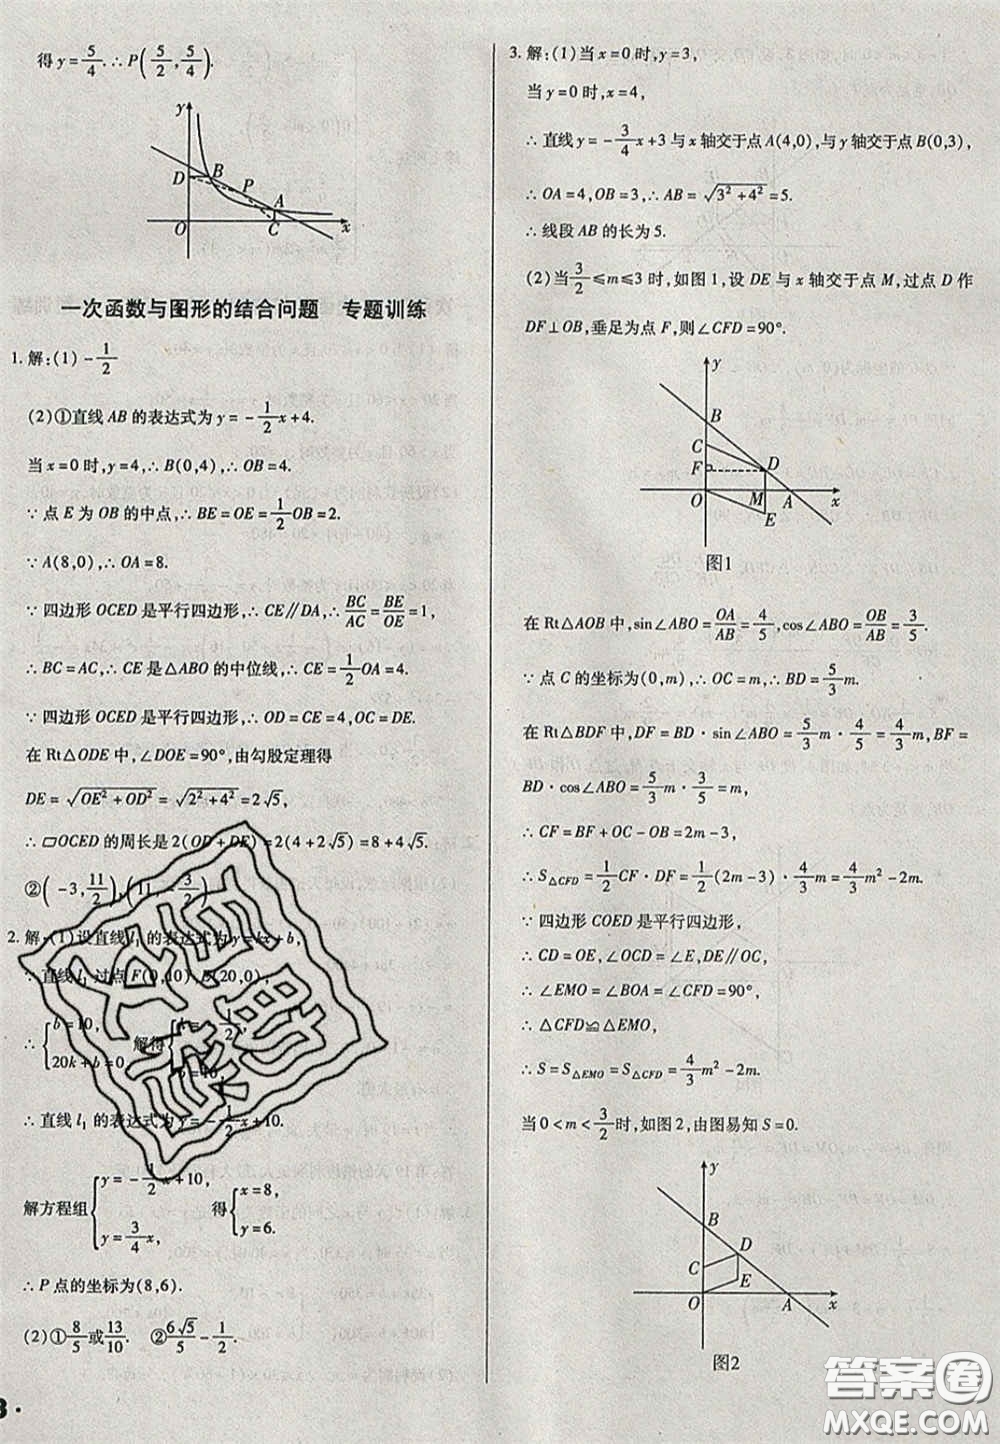 得y=5/4.∴P(5/2,5/4).
y
D
B
P
A
O
C
x
一次函数与图形的结合问题 专题训练
1.解:(1)-1/2
(2)①直线AB的表达式为y=-1/2x+4.
当x=0时,y=4,∴B(0,4),∴OB=4.
∵点E为OB的中点,∴BE=OE=1/2OB=2.
∵A(8,0),∴OA=8.
∵四边形OCED是平行四边形,∴CE∥DA,∴BC/AC=BE/OE=1,
∴BC=AC,∴CE是△ABO的中位线,∴CE=1/2OA=4.
∵四边形OCED是平行四边形,∴OD=CE=4,OC=DE.
在Rt△ODE中,∠DOE=90°,由勾股定理得
DE=√(OE²+OD²)=√(2²+4²)=2√5,
∴▱OCED的周长是2(OD+DE)=2(4+2√5)=8+4√5.
②(-3,11/2),(11,-3/2)
2.解:(1)设直线l₁的表达式为y=kx+b,
∵直线l₁过点F(0,10),E(20,0),
∴{b=10, 20k+b=0, 解得{k=-1/2, b=10,
∴直线l₁的表达式为y=-1/2x+10.
解方程组{y=-1/2x+10, y=3/4x, 得{x=8, y=6.
∴P点的坐标为(8,6).
(2)①8/5或13/10. ②6√5/5-1/2.
3.解:(1)当x=0时,y=3,
当y=0时,x=4,
∴直线y=-3/4x+3与x轴交于点A(4,0),与y轴交于点B(0,3),
∴OA=4,OB=3,∴AB=√(3²+4²)=5.
∴线段AB的长为5.
(2)当3/2≤m≤3时,如图1,设DE与x轴交于点M,过点D作
DF⊥OB,垂足为点F,则∠CFD=90°.
y
B
C
F
D
O
M
A
x
E
图1
在Rt△AOB中,sin∠ABO=OA/AB=4/5,cos∠ABO=OB/AB=3/5.
∵点C的坐标为(0,m),∴OC=m,∴BD=5/3m.
在Rt△BDF中,DF=BD·sin∠ABO=5/3m·4/5=4/3m,BF=
BD·cos∠ABO=5/3m·3/5=m,
∴CF=BF+OC-OB=2m-3,
∴S△CFD=1/2CF·DF=1/2(2m-3)·4/3m=4/3m²-2m.
∵四边形COED是平行四边形,
∴CD=OE,∠OCD=∠E,DE∥OC,
∴∠EMO=∠BOA=∠CFD=90°,
∴△CFD≌△EMO,
∴S=S△EMO=S△CFD=4/3m²-2m.
当0<m<3/2时,如图2,由图易知S=0.
y
B
D
C
E
O
A
x
图2
答案圈
MXQE.COM